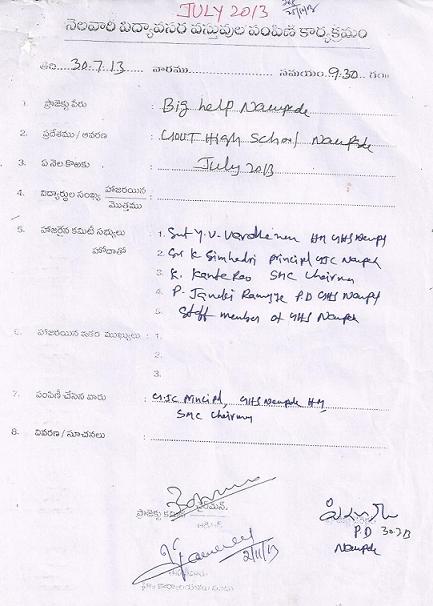 JULY 2013
నెలవారి విద్యావసర వస్తువుల పంపిణి కార్యక్రమం
తేది....30.7.13 వారము సమయం.9.30 గం॥
1. ప్రాజెక్టు పేరు : Big help Naupade
2. ప్రదేశము / ఆవరణ : GOVT High School Naupade
3. ఏ నెల కొఱకు : July 2013
4. విద్యార్థుల సంఖ్య హాజరయిన :
మొత్తము
5. హాజరైన కమిటీ సభ్యులు : 1. Smt Y. V. HM GHS
హోదాతో 2. Sri K Simhadri principal GJC Naupade
3. K. Kante Rao SMC Chairman
4. P. Janaki P.D GHS Naupade
5. Staff member of GHS Naupade
6. హాజరయిన ఇతర ముఖ్యులు : 1.
2.
3.
7. పంపిణీ చేసిన వారు : GJC Principal, GHS Naupade HM
SMC Chairman
8. వివరణ / సూచనలు :
ప్రాజెక్టు కమిటీ ఛైర్మన్.
2/11/13
P.D 30.7.13
Naupade